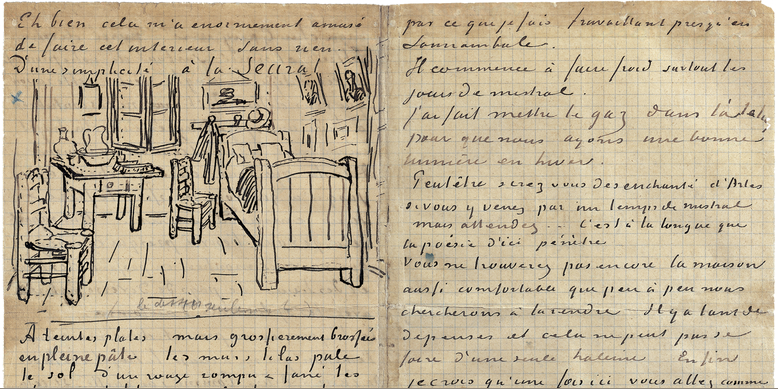 Eh bien cela m'a enormement amusé
de faire cet interieur sans rien.
D'une simplicité à la Seurat
A teintes plates mais grossierement brossées
en pleine pâte les murs lilas pale
le sol d'un rouge rompu & fané les
par ce que je fais travaillant presqu'en
somnambule.
Il commence à faire froid surtout les
jours de mistral.
j'ai fait mettre le gaz dans l'atel
pour que nous ayons une bonne
lumière en hiver.
Peutêtre serez vous desenchanté d'Arles
si vous y venez par un temps de mistral
mais attendez... C'est à la longue que
la poésie d'ici pénètre
Vous ne trouverez pas encore la maison
aussi confortable que peu à peu nous
chercherons à la rendre Il y a tant de
depenses et cela ne peut pas se
faire d'une seule haleine Enfin
je crois qu'une fois ici vous allez comme